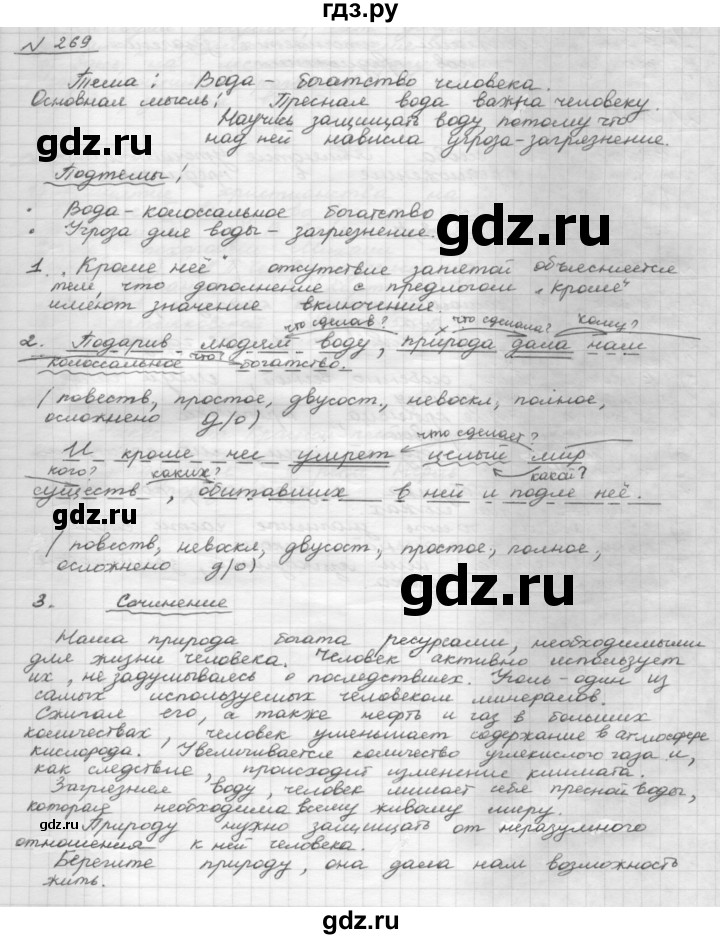 гдз.ру
N 269
Тема: Вода - богатство человека.
Основная мысль: Пресная вода важна человеку.
Научись защищать воду потому что
над ней нависла угроза-загрязнение.
gdz.ru
Подтемы:
• Вода-колоссальное богатство
• Угроза для воды - загрязнение.
gdz.ru
1. „Кроме неё" отсутствие запятой объясняется
тем, что дополнение с предлогом „кроме"
имеют значение включения.
что сделав? что сделала? кому?
2. Подарив людям воду, природа дала нам
что?
колоссальное богатство.
gdz.ru
(повеств, простое, двусост., невоскл, полное,
осложнено д/о)
что сделает?
И кроме нее умрет целый мир
кого? каких? какой?
существ, обитавших в ней и подле неё.
gdz.ru
(повеств, невоскл, двусост, простое, полное,
осложнено д/о)
gdz.ru
3. Сочинение
Наша природа богата ресурсами, необходимыми
для жизни человека. Человек активно использует
их, не задумываясь о последствиях. Уголь - один из
самых используемых человеком минералов.
gdz.ru
Сжигая его, а также нефть и газ в больших
количествах, человек уменьшает содержание в атмосфере
кислорода. Увеличивается количество углекислого газа и,
как следствие, происходит изменение климата.
Загрязняя воду, человек лишает себя пресной воды,
которая необходима всему живому миру.
gdz.ru
Природу нужно защищать от неразумного
отношения к ней человека.
Берегите природу, она дала нам возможность
жить.
gdz.ru
gdz.ru